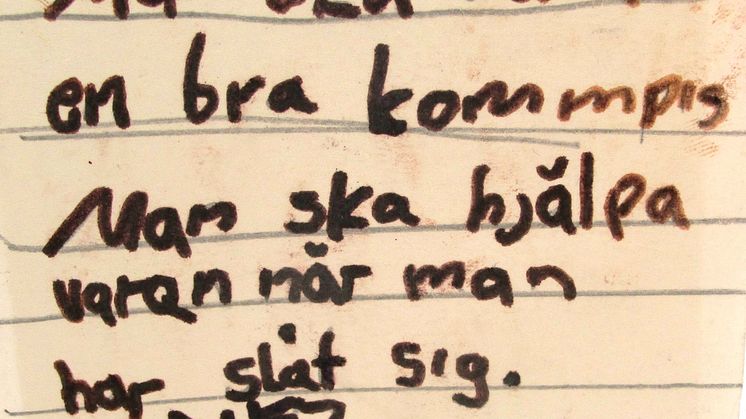 en bra kommmpis
Man ska hjälpa
varan när man
har slåt sig.